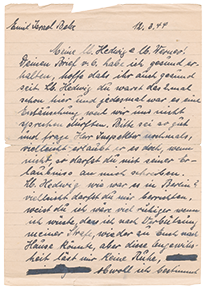 Emil Israel 12.3.44
Meine lb. Hedwig & lb. Werner!
Deinen Brief v. 6. habe ich gesund er-
halten, hoffe dass ihr auch gesund
seit. Lb. Hedwig du warst das hmal
schon hier und jedesmal war es eine
Enttäuschung weil wir uns nicht
sprechen durften. Bitte sei so gut
und frage Herr Inspektor nochmals,
vielleicht erlaubt er es doch, wenn
nicht, so darfst du mit seiner Er-
laubniss an mich schreiben.
Lb. Hedwig wie war es in Berlin?
vielleicht darfst du mir berichten,
weist du ich wäre viel ruhiger wenn
ich wüste, dass ich nach Verbüssung
meiner Strafe, wieder zu Euch nach
Hause könnte, aber diese Ungewis-
heit lässt mir keine Ruhe,
Obwohl ich bestimmt